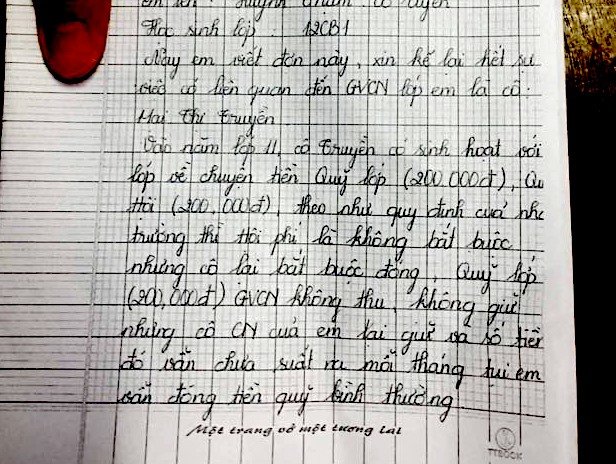 em tên : Huỳnh
Học sinh lớp : 12CB1
Nay em viết đơn này, xin kể lại hết sự
việc có liên quan đến GVCN lớp em là cô.
Mai Thị Truyền
Vào năm lớp 11, cô Truyền có sinh hoạt với
lớp về chuyện tiền Quỹ lớp (200.000đ), Qu
Hội (200,000đ), theo như quy định cuả nhà
trường thì Hội phí là không bắt buộc
nhưng cô lại bắt buộc đóng, Quỹ lớp
(200,000đ) GVCN không thu, không giữ
nhưng cô CN cuả em lại giữ và số tiền
đó vẫn chưa suất ra mỗi tháng tụi em
vẫn đóng tiền quỹ bình thường
Một trang vở một tương lai
TTBOOK